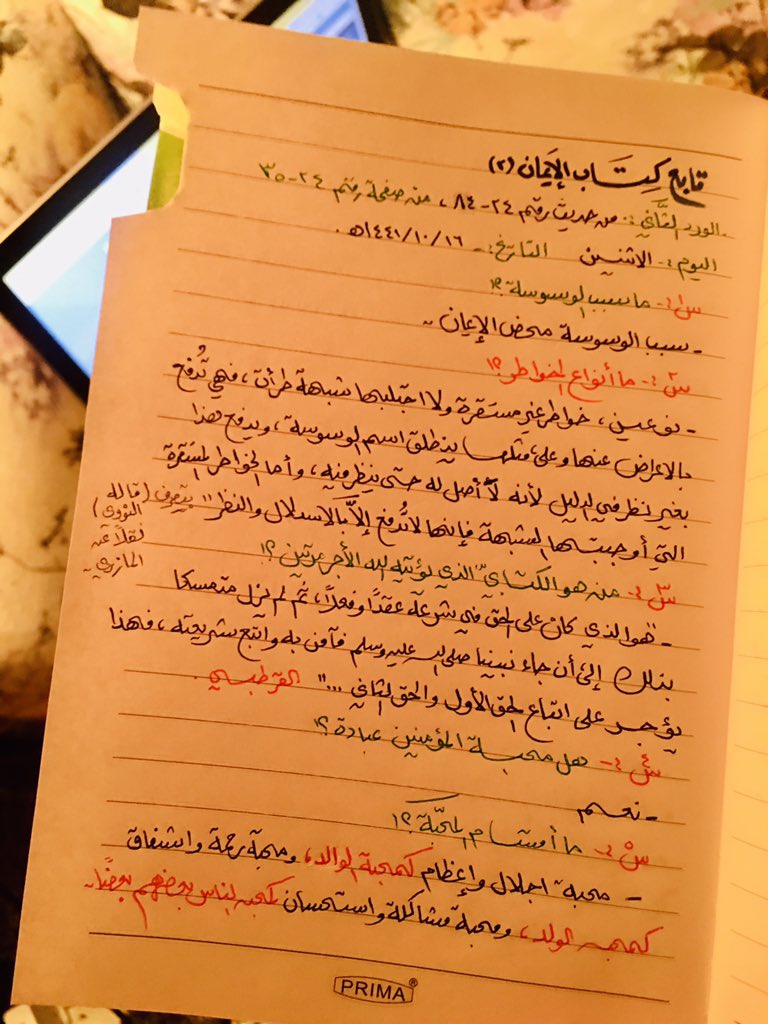 تابع كِتَاب الإيمان (٢)
الورد الثَّاني: من حديث رقم ٢٤-٨٤، من صفحة رقم ٢٤-٣٥
اليوم:- الاثنين التاريخ:- ١٤٤١/١٠/١٦هـ.
س١:- ما سبب الوسوسة؟!
- سبب الوسوسة محض الإيمان..
س٢:- ما أنواع الخواطر؟!
- نوعين، خواطر غير مستقرة ولا اجتلبها شبهة طرأت، فهي تُدفع
بالاعراض عنها وعلى مثلها ينطلق اسم الوسوسة، ويدفع هذا
بغير نظر في الدليل لأنه لا أصل له حتى ينظر فيه، وأما الخواطر المستقرة
التي أوجبتها الشبهة فإنها لا تُدفع إلاَّ بالاستدلال والنظر" بتصرف (قاله
النووي)
نقلاً عن
المازري..
س٣:- من هو الكتابيّ الذي يؤتيه الله الأجر مرتين؟!
- "هو الذي كان على الحق في شرعه عقدًا وفعلاً، ثم لم يزل متمسكا
بذلك إلى أن جاء نبينا صلى الله عليه وسلم فآمن به واتبع شريعته، فهذا
يؤجر على اتباع الحق الأول والحق الثاني ..." القرطبي.
س٤:- هل محبة المؤمنين عبادة؟!
- نعم
س٥:- ما أقسام المحبّة؟!
- محبة اجلال وإعظام كمحبة الوالد، ومحبة رحمة واشفاق
كمحبة الولد، ومحبة مشاكلة واستحسان كمحبة الناس بعضهم بعضًا..
PRIMA®